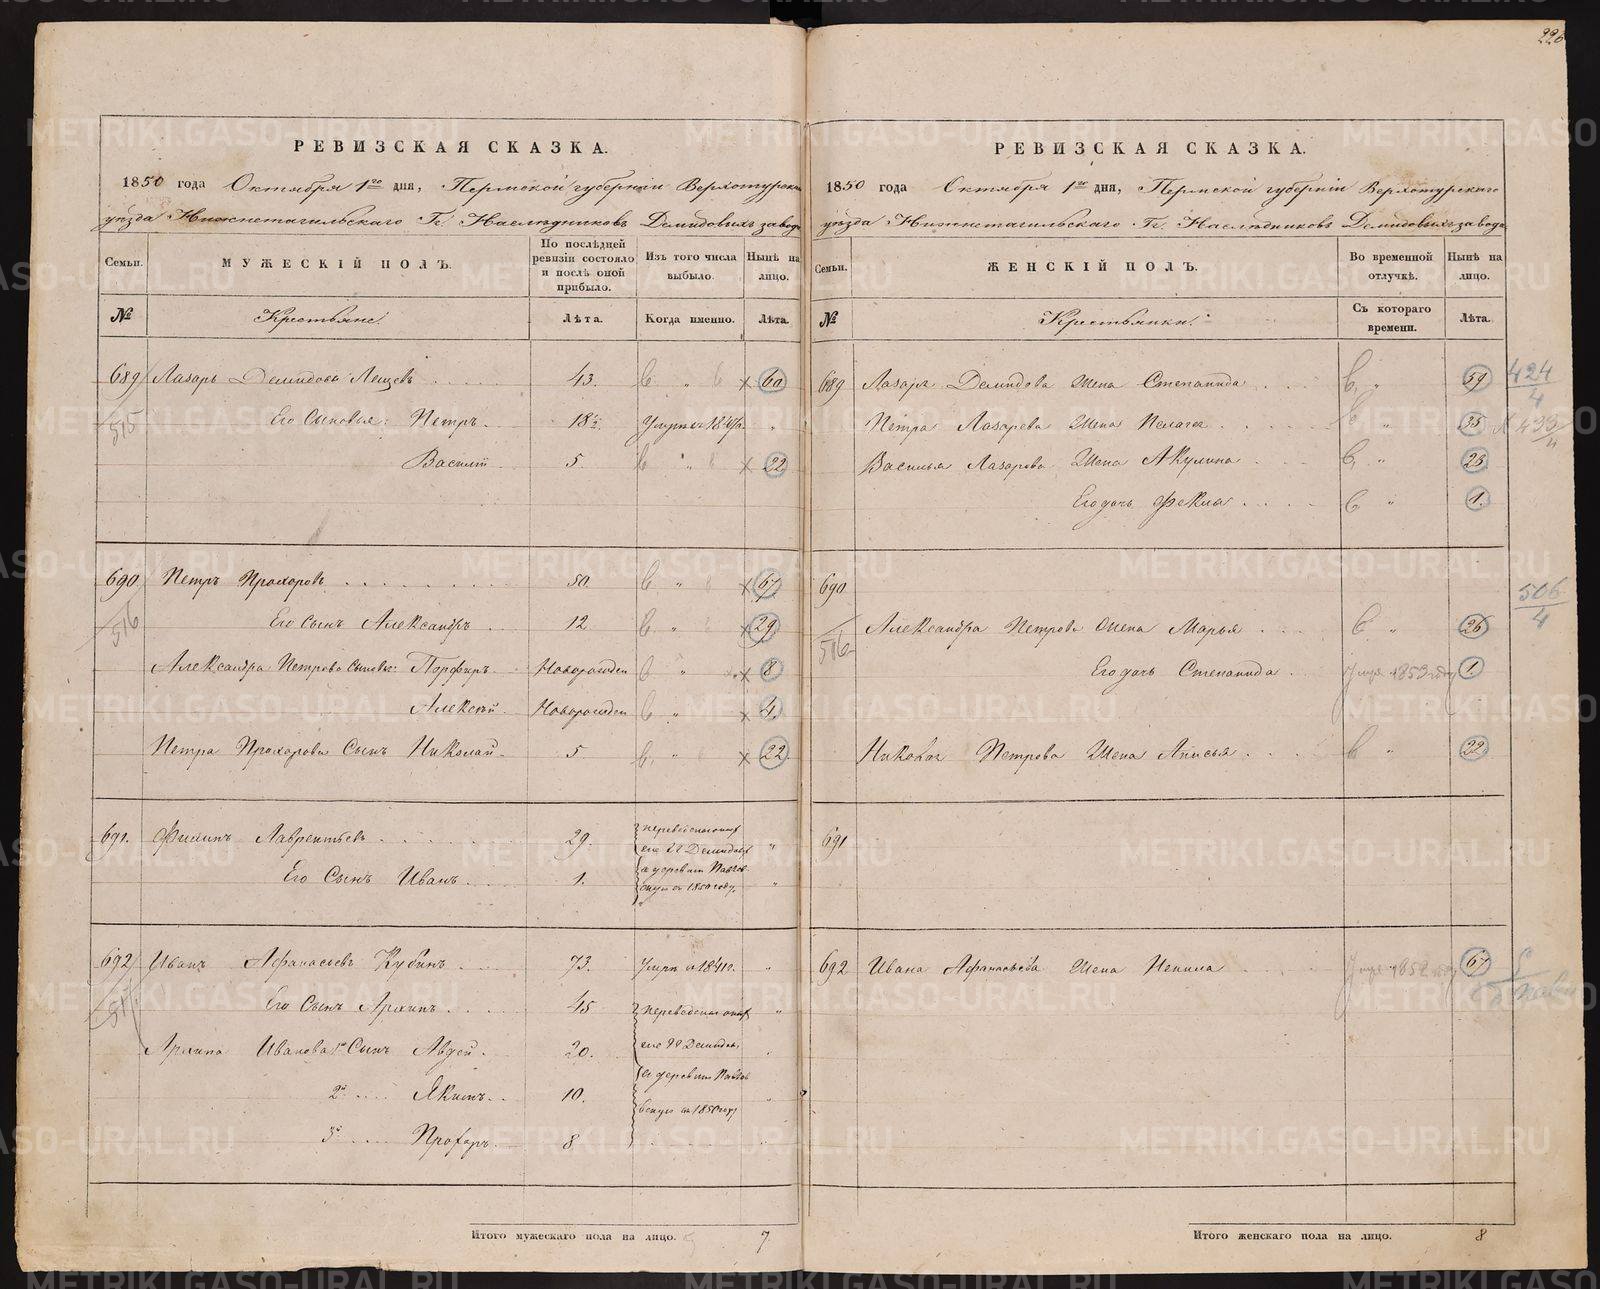 226
РЕВИЗСКАЯ СКАЗКА.
1850 года Октября 1го дня, Пермской губерніи Верхотурскаго
уѣзда Нижнетагильскаго Гг. Наслѣдниковъ Демидовыхъ завода
Семьи. МУЖЕСКІЙ ПОЛЪ. По послѣдней ревизіи состояло и послѣ оной прибыло. Изъ того числа выбыло. Нынѣ на лицо.
№ Крестьяне. Лѣта. Когда именно. Лѣта.
689 Лазарь Демидовъ Лещевъ 43. 60
515 Его Сыновья: Петръ 18½ Умеръ
Василій 5. 22
690 Петръ Прохоровъ 50. 67
516 Его Сынъ Александръ 12. 29
Александра Петрова Сыновья: Порфиръ Новорожден 8
Алексѣй Новорожден 4
Петра Прохорова Сынъ Николай 5 22
691. Филипъ Лаврентьевъ 29.
Его Сынъ Иванъ 1.
въ 1850 году.
692 Иванъ Афанасьевъ Кубинъ 73. Умеръ въ 1841 г.
517 Его Сынъ Архипъ 45
Архипа Иванова 1й Сынъ Авдей 20.
2й Якимъ 10.
3й Профоръ 8
въ 1850 году
Итого мужескаго пола на лицо. 7
РЕВИЗСКАЯ СКАЗКА.
1850 года Октября 1го дня, Пермской губерніи Верхотурскаго
уѣзда Нижнетагильскаго Гг. Наслѣдниковъ Демидовыхъ завода
Семьи. ЖЕНСКІЙ ПОЛЪ. Во временной отлучкѣ. Нынѣ на лицо.
№ Крестьянки. Съ котораго времени. Лѣта.
689 Лазаря Демидова Жена Степанида 59 424/4
Петра Лазарева Жена Пелагея 35 433/4
Василья Лазарева Жена Акулина 25
Его дочь Фекла 1.
690 506/4
516 Александра Петрова Жена Марья 26
Его дочь Степанида 1853 году 1.
Николая Петрова Жена Анисья 22
691
692 Ивана Афанасьева Жена Ненила 1852 году 67
Итого женскаго пола на лицо. 8
METRIKI.GASO-URAL.RU